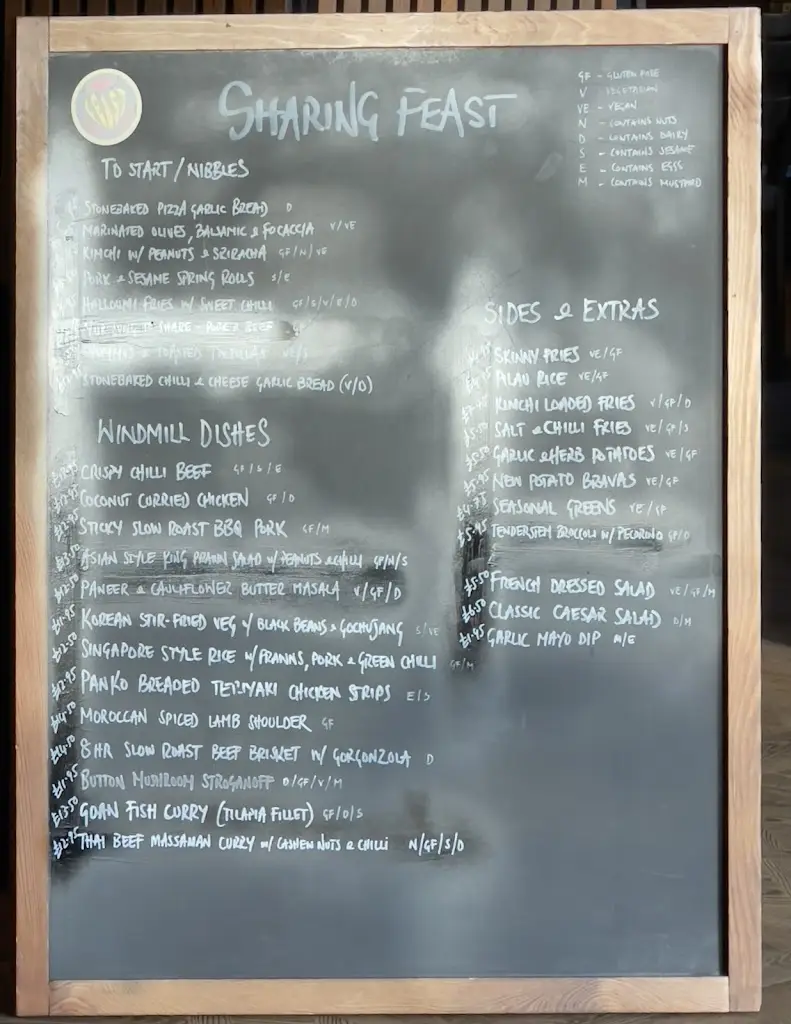 FEAST
SHARING FEAST
GF - GLUTEN FREE
V - VEGETARIAN
VE - VEGAN
N - CONTAINS NUTS
D - CONTAINS DAIRY
S - CONTAINS SESAME
E - CONTAINS EGGS
M - CONTAINS MUSTARD
TO START / NIBBLES
STONEBAKED PIZZA GARLIC BREAD D
MARINATED OLIVES, BALSAMIC & FOCACCIA V/VE
KIMCHI W/ PEANUTS & SRIRACHA GF/N/VE
PORK & SESAME SPRING ROLLS S/E
HALLOUMI FRIES W/ SWEET CHILLI GF/S/V/E/D
TO SHARE
& TOASTED VE/S
STONEBAKED CHILLI & CHEESE GARLIC BREAD (V/D)
WINDMILL DISHES
CRISPY CHILLI BEEF GF/S/E
COCONUT CURRIED CHICKEN GF/D
STICKY SLOW ROAST BBQ PORK GF/M
ASIAN STYLE KING PRAWN SALAD W/ PEANUTS & CHILLI GF/N/S
PANEER & CAULIFLOWER BUTTER MASALA V/GF/D
£11.95 KOREAN STIR-FRIED VEG W/ BLACK BEANS & GOCHUJANG S/VE
£12.50 SINGAPORE STYLE RICE W/ PRAWNS, PORK & GREEN CHILLI GF/M
£12.95 PANKO BREADED TERIYAKI CHICKEN STRIPS E/S
£14.50 MOROCCAN SPICED LAMB SHOULDER GF
£14.50 8HR SLOW ROAST BEEF BRISKET W/ GORGONZOLA D
£11.95 BUTTON MUSHROOM STROGANOFF D/GF/V/M
£13.50 GOAN FISH CURRY (TILAPIA FILLET) GF/D/S
£12.95 THAI BEEF MASSAMAN CURRY W/ CASHEW NUTS & CHILLI N/GF/S/D
SIDES & EXTRAS
SKINNY FRIES VE/GF
PILAU RICE VE/GF
KIMCHI LOADED FRIES V/GF/D
SALT & CHILLI FRIES VE/GF/S
GARLIC & HERB POTATOES VE/GF
NEW POTATO BRAVAS VE/GF
£4.75 SEASONAL GREENS VE/GF
£5.95 TENDERSTEM BROCCOLI W/ PECORINO GF/D
£5.50 FRENCH DRESSED SALAD VE/GF/M
£6.50 CLASSIC CAESAR SALAD D/M
£1.95 GARLIC MAYO DIP M/E